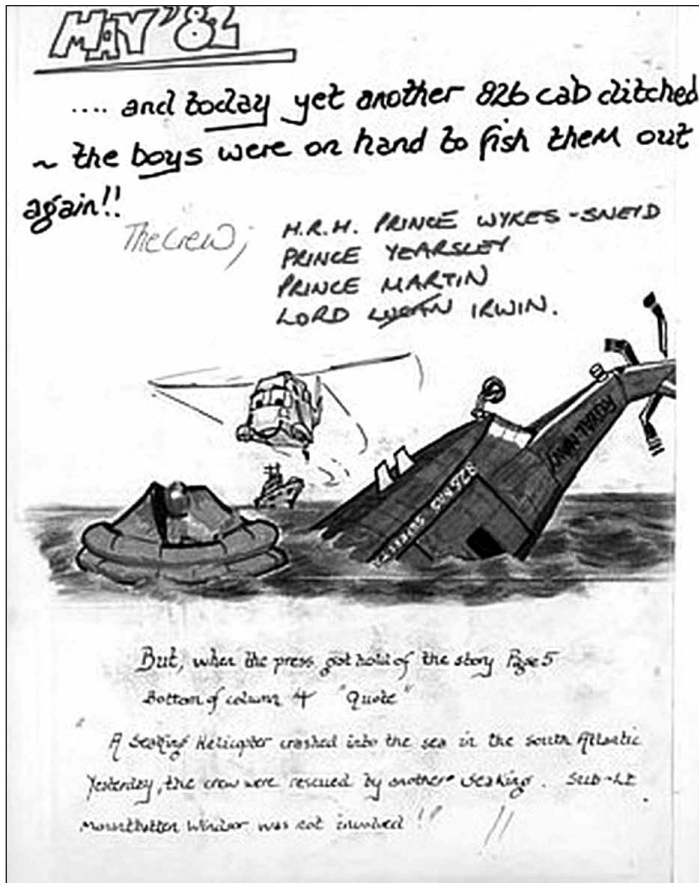 MAY '82
.... and today yet another 826 cab ditched
~ the boys were on hand to fish them out
again!!
The Crew;
H.R.H. PRINCE WYKES-SNEYD
PRINCE YEARSLEY
PRINCE MARTIN
LORD LUCAN IRWIN.
ROYAL NAVY
But, when the press got hold of the story Page 5
Bottom of column 4 "Quote"
"A Seaking Helicopter crashed into the sea in the south Atlantic
Yesterday, the crew were rescued by another Seaking. SUB-LT
Mountbatten Windsor was not involved !!"